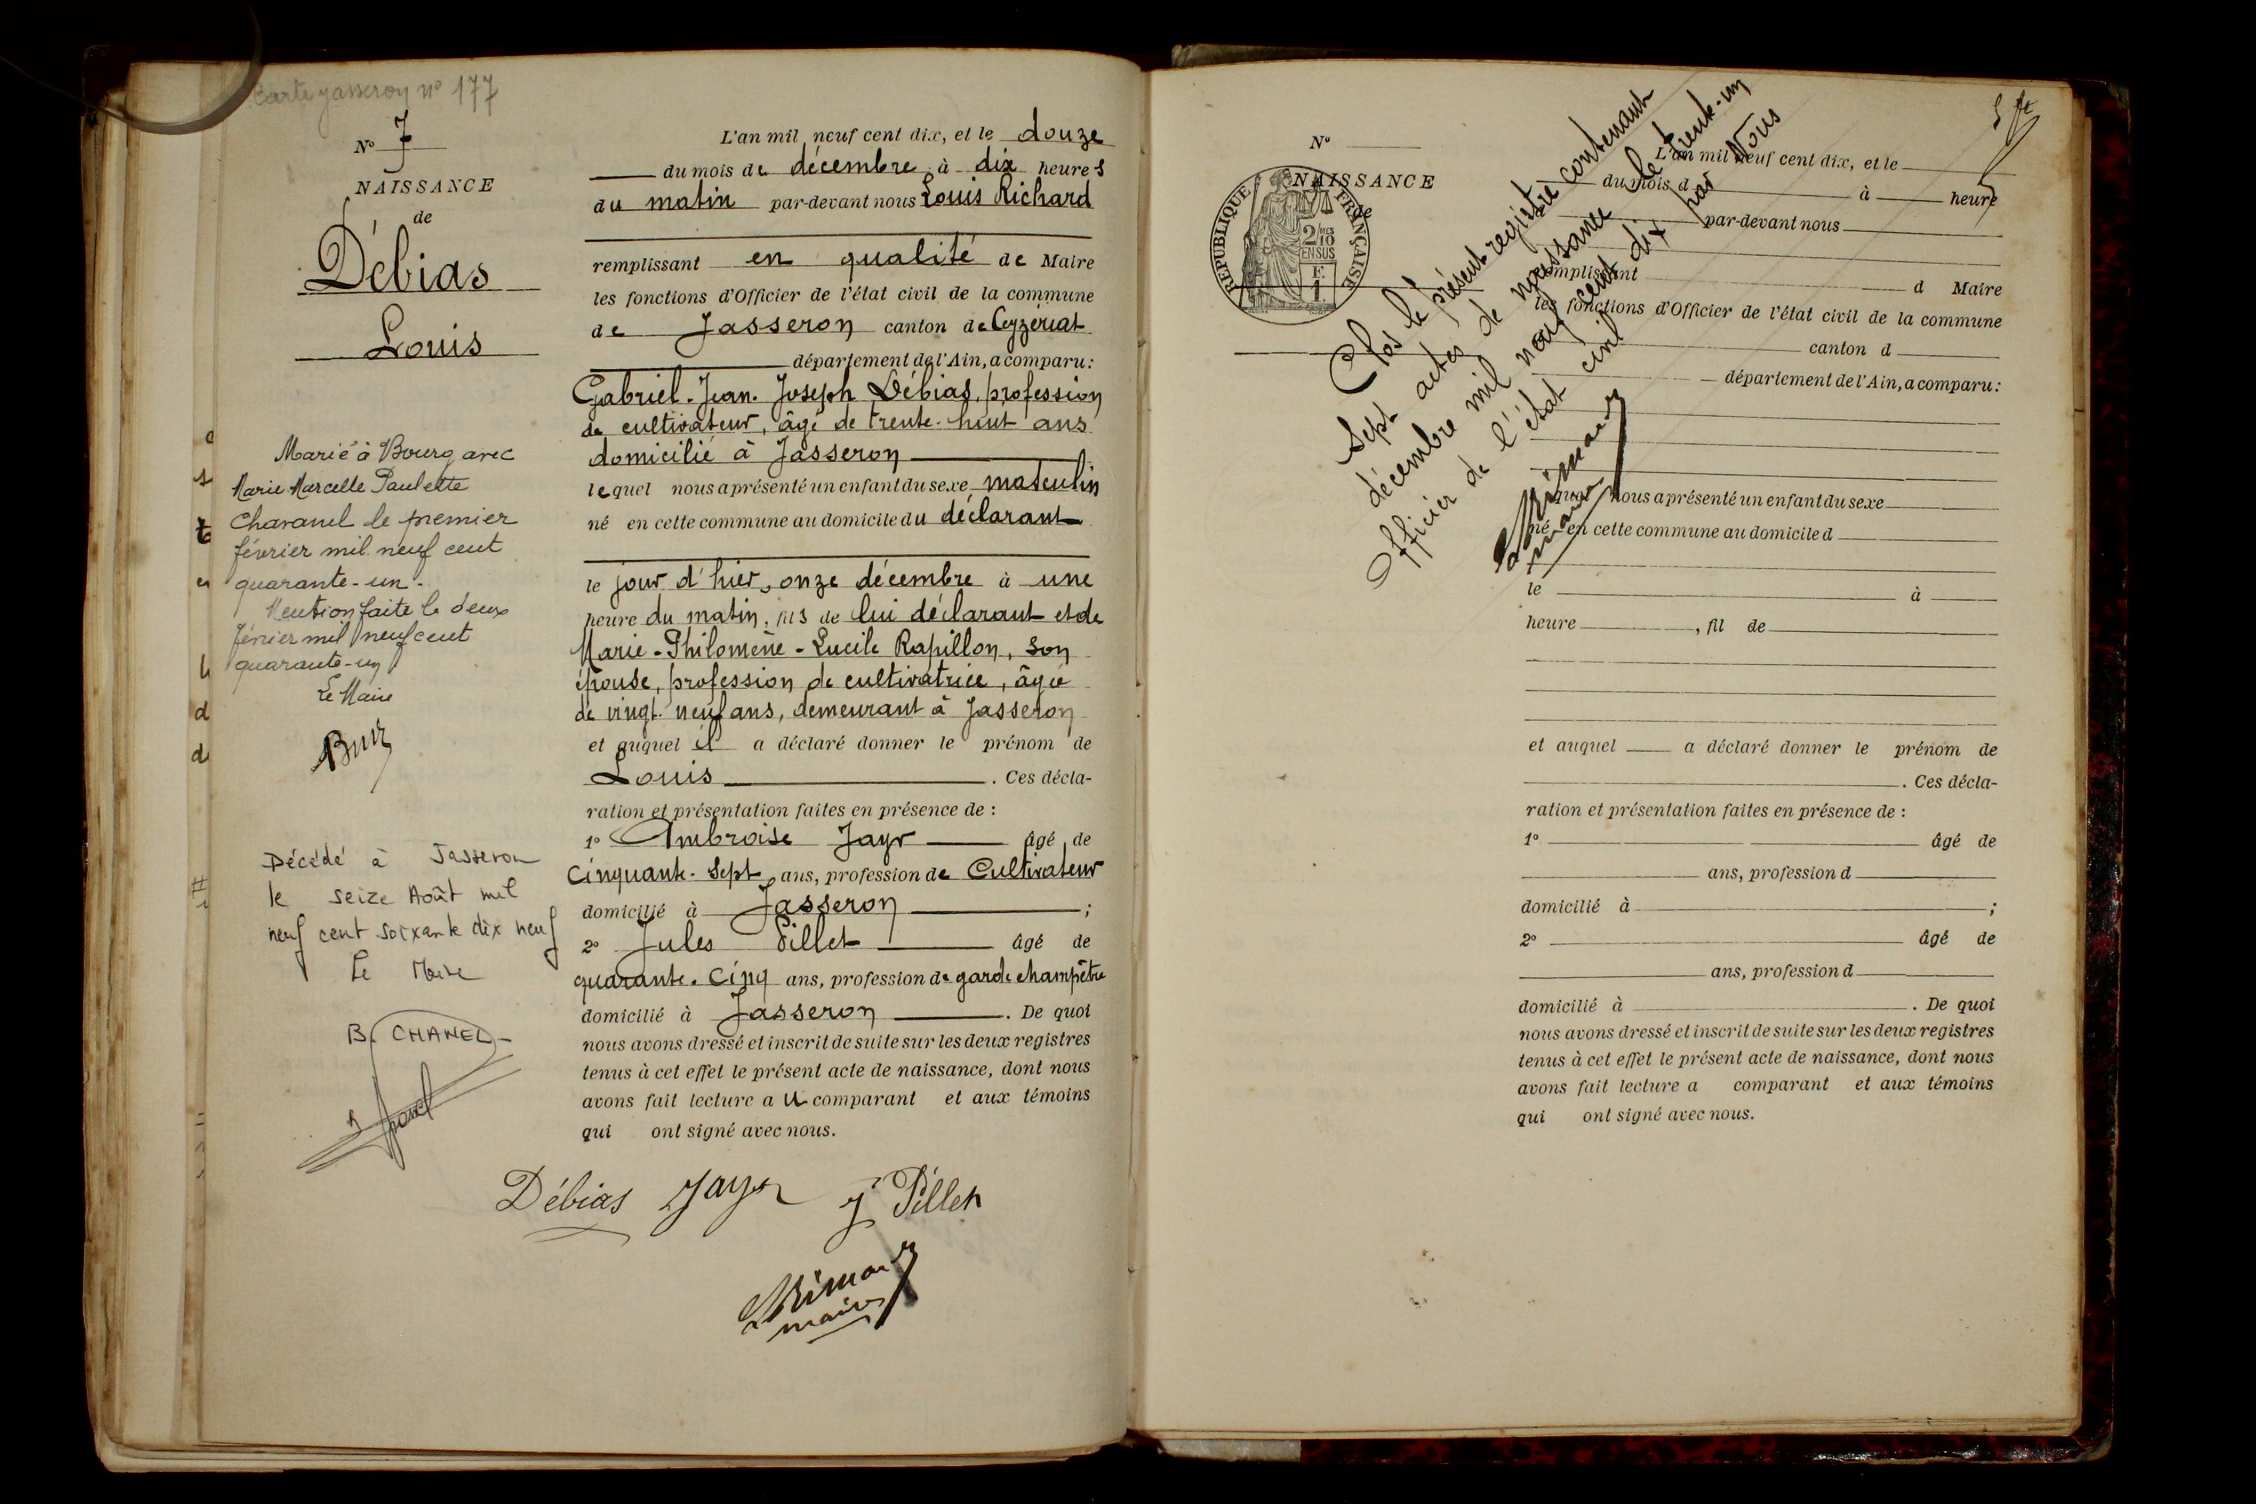 Carte Jasseron n° 177
N° 7
NAISSANCE
de
Débias
Louis
Marié à Bourg avec
Marie Marcelle Paulette
Charanel le premier
février mil neuf cent
quarante-un.
Mention faite le deux
février mil neuf cent
quarante-un
Le Maire
Décédé à Jasseron
le seize Août mil
neuf cent soixante dix neuf
Le Maire
B. CHANEL
L'an mil neuf cent dix, et le douze
du mois de décembre à dix heures
du matin par-devant nous Louis Richard
remplissant en qualité de Maire
les fonctions d'Officier de l'état civil de la commune
de Jasseron canton de Ceyzeriat
département de l'Ain, a comparu :
Gabriel-Jean-Joseph Débias, profession
de cultivateur, âgé de trente-huit ans
domicilié à Jasseron
lequel nous a présenté un enfant du sexe masculin
né en cette commune au domicile du déclarant
le jour d'hier, onze décembre à une
heure du matin, fils de lui déclarant et de
Marie-Philomène-Lucile Rapillon, son
épouse, profession de cultivatrice, âgée
de vingt-neuf ans, demeurant à Jasseron
et auquel il a déclaré donner le prénom de
Louis . Ces décla-
ration et présentation faites en présence de :
1° Ambroise Jayr âgé de
Cinquante-sept ans, profession de Cultivateur
domicilié à Jasseron ;
2° Jules Pillet âgé de
quarante-cinq ans, profession de garde champêtre
domicilié à Jasseron . De quoi
nous avons dressé et inscrit de suite sur les deux registres
tenus à cet effet le présent acte de naissance, dont nous
avons fait lecture au comparant et aux témoins
qui ont signé avec nous.
Débias Jayr J Pillet
maire
N°
NAISSANCE
de
REPUBLIQUE FRANÇAISE
2/10
EN SUS
F.
1
Clos le présent registre contenant
Sept actes de naissance le trente-un
décembre mil neuf cent dix par Nous
Officier de l'état civil
maire
L'an mil neuf cent dix, et le
du mois d à heure
par-devant nous
remplissant d Maire
les fonctions d'Officier de l'état civil de la commune
canton d
département de l'Ain, a comparu :
quel nous a présenté un enfant du sexe
né en cette commune au domicile d
le à
heure , fil de
et auquel a déclaré donner le prénom de
. Ces décla-
ration et présentation faites en présence de :
1° âgé de
ans, profession d
domicilié à ;
2° âgé de
ans, profession d
domicilié à . De quoi
nous avons dressé et inscrit de suite sur les deux registres
tenus à cet effet le présent acte de naissance, dont nous
avons fait lecture a comparant et aux témoins
qui ont signé avec nous.